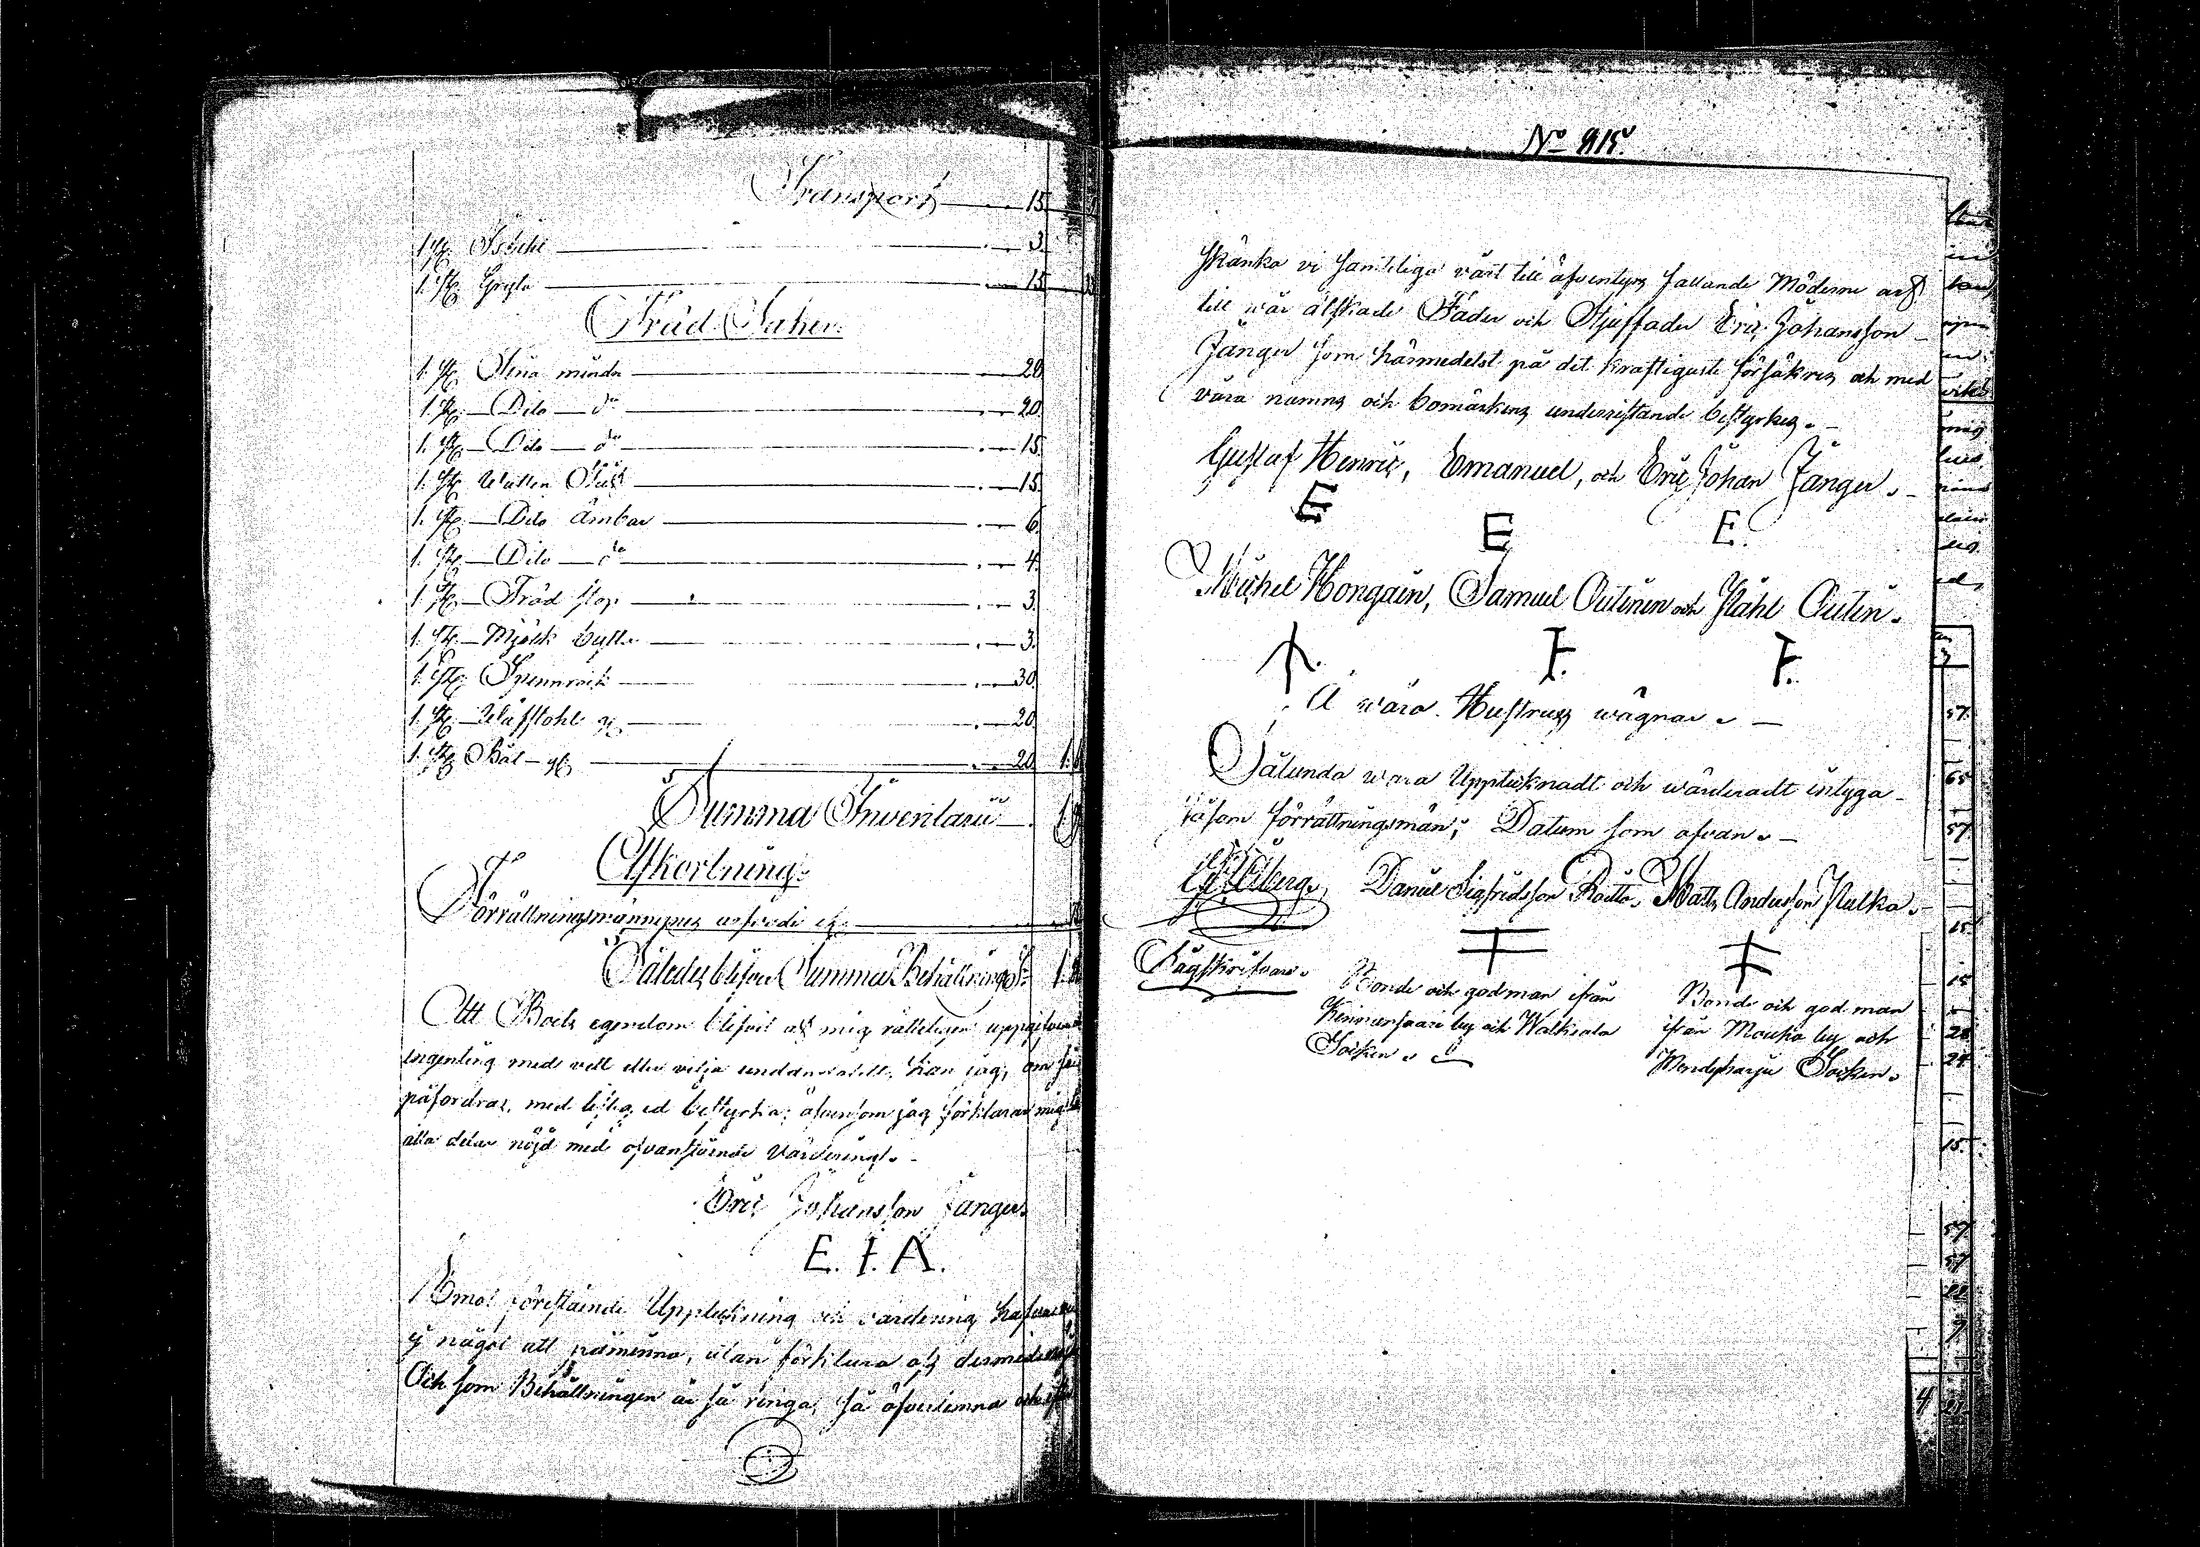 Transport 15.
1. st. 3.
1. st. Gryta 15.
Träd Saker.
1. st. mindre 20.
1. st. Dito do 20.
1. st. Dito do 15.
1. st. Watten 15.
1. st. Dito ämbar 6.
1. st. Dito do 4.
1. st. Träd stop 3.
1. st. Mjölk bytta 3.
1. st. Spinnrock 30.
1. st. Wäfstohl 20.
1. st. Båt 20.
Summa Inventarii
Afkortning.
Förrättningsmännernes arfvode
Således blifver Summa Behållning
Att Boets egendom blifvit af mig rätteligen uppgifven
ingenting med vett eller vilja undandöldt, kan jag, om så
påfordras, med liflig ed bestyrka; äfvensom jag förklarar mig
alla delar nöjd med ofvanstående värdering.
Eric Johansson Janger
E. I. Ä.
Emot förestående Uppteckning och värdering hafva
ej något att påminna, utan förklara oss dermed
Och som Behållningen är så ringa, så öfverlemna och
No 915.
skänka vi samtliga vårt till äfventyrs fallande Möderne arf
till vår älskade Fader och Stjuffader Eric Johansson
Janger som härmedelst på det kraftigaste försäkras och med
våra namns och bomärkens underristande bestyrkes.
Gustaf Henric, Emanuel, och Eric Johan Janger.
E E E.
Michel Hongain, Samuel Outinen och Ståhl Outin.
Å våra Hustrurs wägnar.
Sålunda wara Upptecknadt och wärderadt intyga
såsom förrättningsmän; Datum som ofvan.
Daniel Sigfridsson Matts Andersson
Bonde och godman ifrån
by och Walkiala
Socken.
Bonde och god man
ifrån Mouhu by och
Mendyharju Socken.